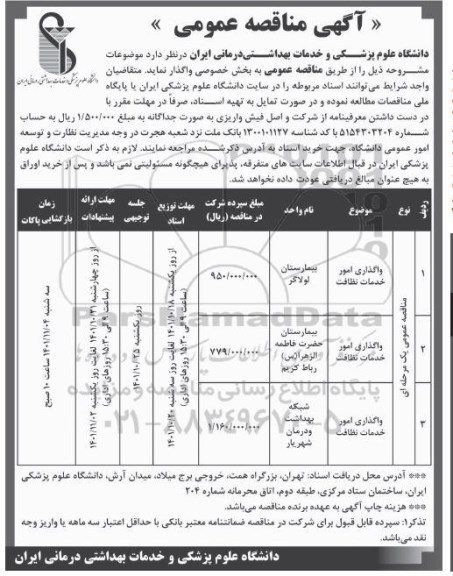 « آگهی مناقصه عمومی »
دانشگاه علوم پزشکی و خدمات بهداشتی درمانی ایران
دانشگاه علوم پزشکی و خدمات بهداشتی‌درمانی ایران درنظر دارد موضوعات
مشروحه ذیل را از طریق مناقصه عمومی به بخش خصوصی واگذار نماید. متقاضیان
واجد شرایط می‌توانند اسناد مربوطه را در سایت دانشگاه علوم پزشکی ایران یا پایگاه
ملی مناقصات مطالعه نموده و در صورت تمایل به تهیه اسناد، صرفاً در مهلت مقرر با
در دست داشتن معرفینامه از شرکت و اصل فیش واریزی به صورت جداگانه به مبلغ ۱/۵۰۰/۰۰۰ ریال به حساب
شماره ۵۱۵۴۳۰۳۲۰۴ با کد شناسه ۱۳۰۰۱۰۱۱۲۷ بانک ملت نزد شعبه هجرت در وجه مدیریت نظارت و توسعه
امور عمومی دانشگاه، جهت خرید اسناد به آدرس ذکرشده مراجعه نمایند. لازم به ذکر است دانشگاه علوم
پزشکی ایران در قبال اطلاعات سایت های متفرقه، پذیرای هیچگونه مسئولیتی نمی باشد و پس از خرید اوراق
به هیچ عنوان مبالغ دریافتی عودت داده نخواهد شد.
ردیف نوع موضوع نام واحد مبلغ سپرده شرکت در مناقصه (ریال) مهلت توزیع اسناد جلسه توجیهی مهلت ارائه پیشنهادات زمان بازگشایی پاکات
مناقصه عمومی یک مرحله ای
۱ واگذاری امور خدمات نظافت بیمارستان لولاگر ۹۵۰/۰۰۰/۰۰۰
۲ واگذاری امور خدمات نظافت بیمارستان حضرت فاطمه الزهرا(س) رباط کریم ۷۷۹/۰۰۰/۰۰۰
۳ واگذاری امور خدمات نظافت شبکه بهداشت ودرمان شهریار ۱/۱۶۰/۰۰۰/۰۰۰
از روز یکشنبه ۱۴۰۱/۱۰/۱۸ لغایت روز سه‌شنبه ۱۴۰۱/۱۰/۲۰ (ساعت ۹ الی ۱۵:۳۰ روزهای اداری)
روز یکشنبه ۱۴۰۱/۱۰/۲۵
از روز چهارشنبه ۱۴۰۱/۱۰/۲۱ لغایت روز یکشنبه ۱۴۰۱/۱۱/۰۲ (ساعت ۹ الی ۱۵:۳۰ روزهای اداری)
سه شنبه ۱۴۰۱/۱۱/۰۴ ساعت ۱۰ صبح
ParsNamadData
پایگاه اطلاع رسانی مناقصه و مزایده
۰۲۱-۸۸۳۴۹۶۷۰-۵
*** آدرس محل دریافت اسناد: تهران، بزرگراه همت، خروجی برج میلاد، میدان آرش، دانشگاه علوم پزشکی
ایران، ساختمان ستاد مرکزی، طبقه دوم، اتاق محرمانه شماره ۲۰۴
*** هزینه چاپ آگهی به عهده برنده مناقصه می‌باشد.
تذکر۱: سپرده قابل قبول برای شرکت در مناقصه ضمانتنامه معتبر بانکی با حداقل اعتبار سه ماهه یا واریز وجه
نقد می‌باشد.
دانشگاه علوم پزشکی و خدمات بهداشتی درمانی ایران